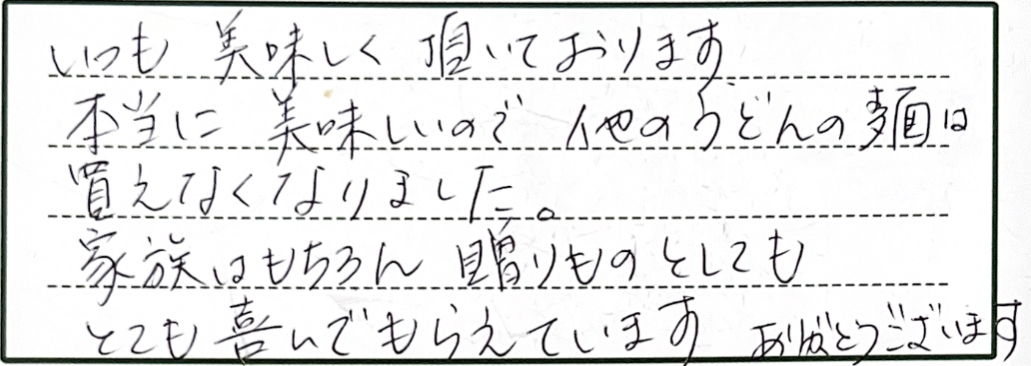 いつも 美味しく 頂いております
本当に 美味しいので 他のうどんの麺は
買えなくなりました。
家族はもちろん 贈りものとしても
とても喜んでもらえています ありがとうございます